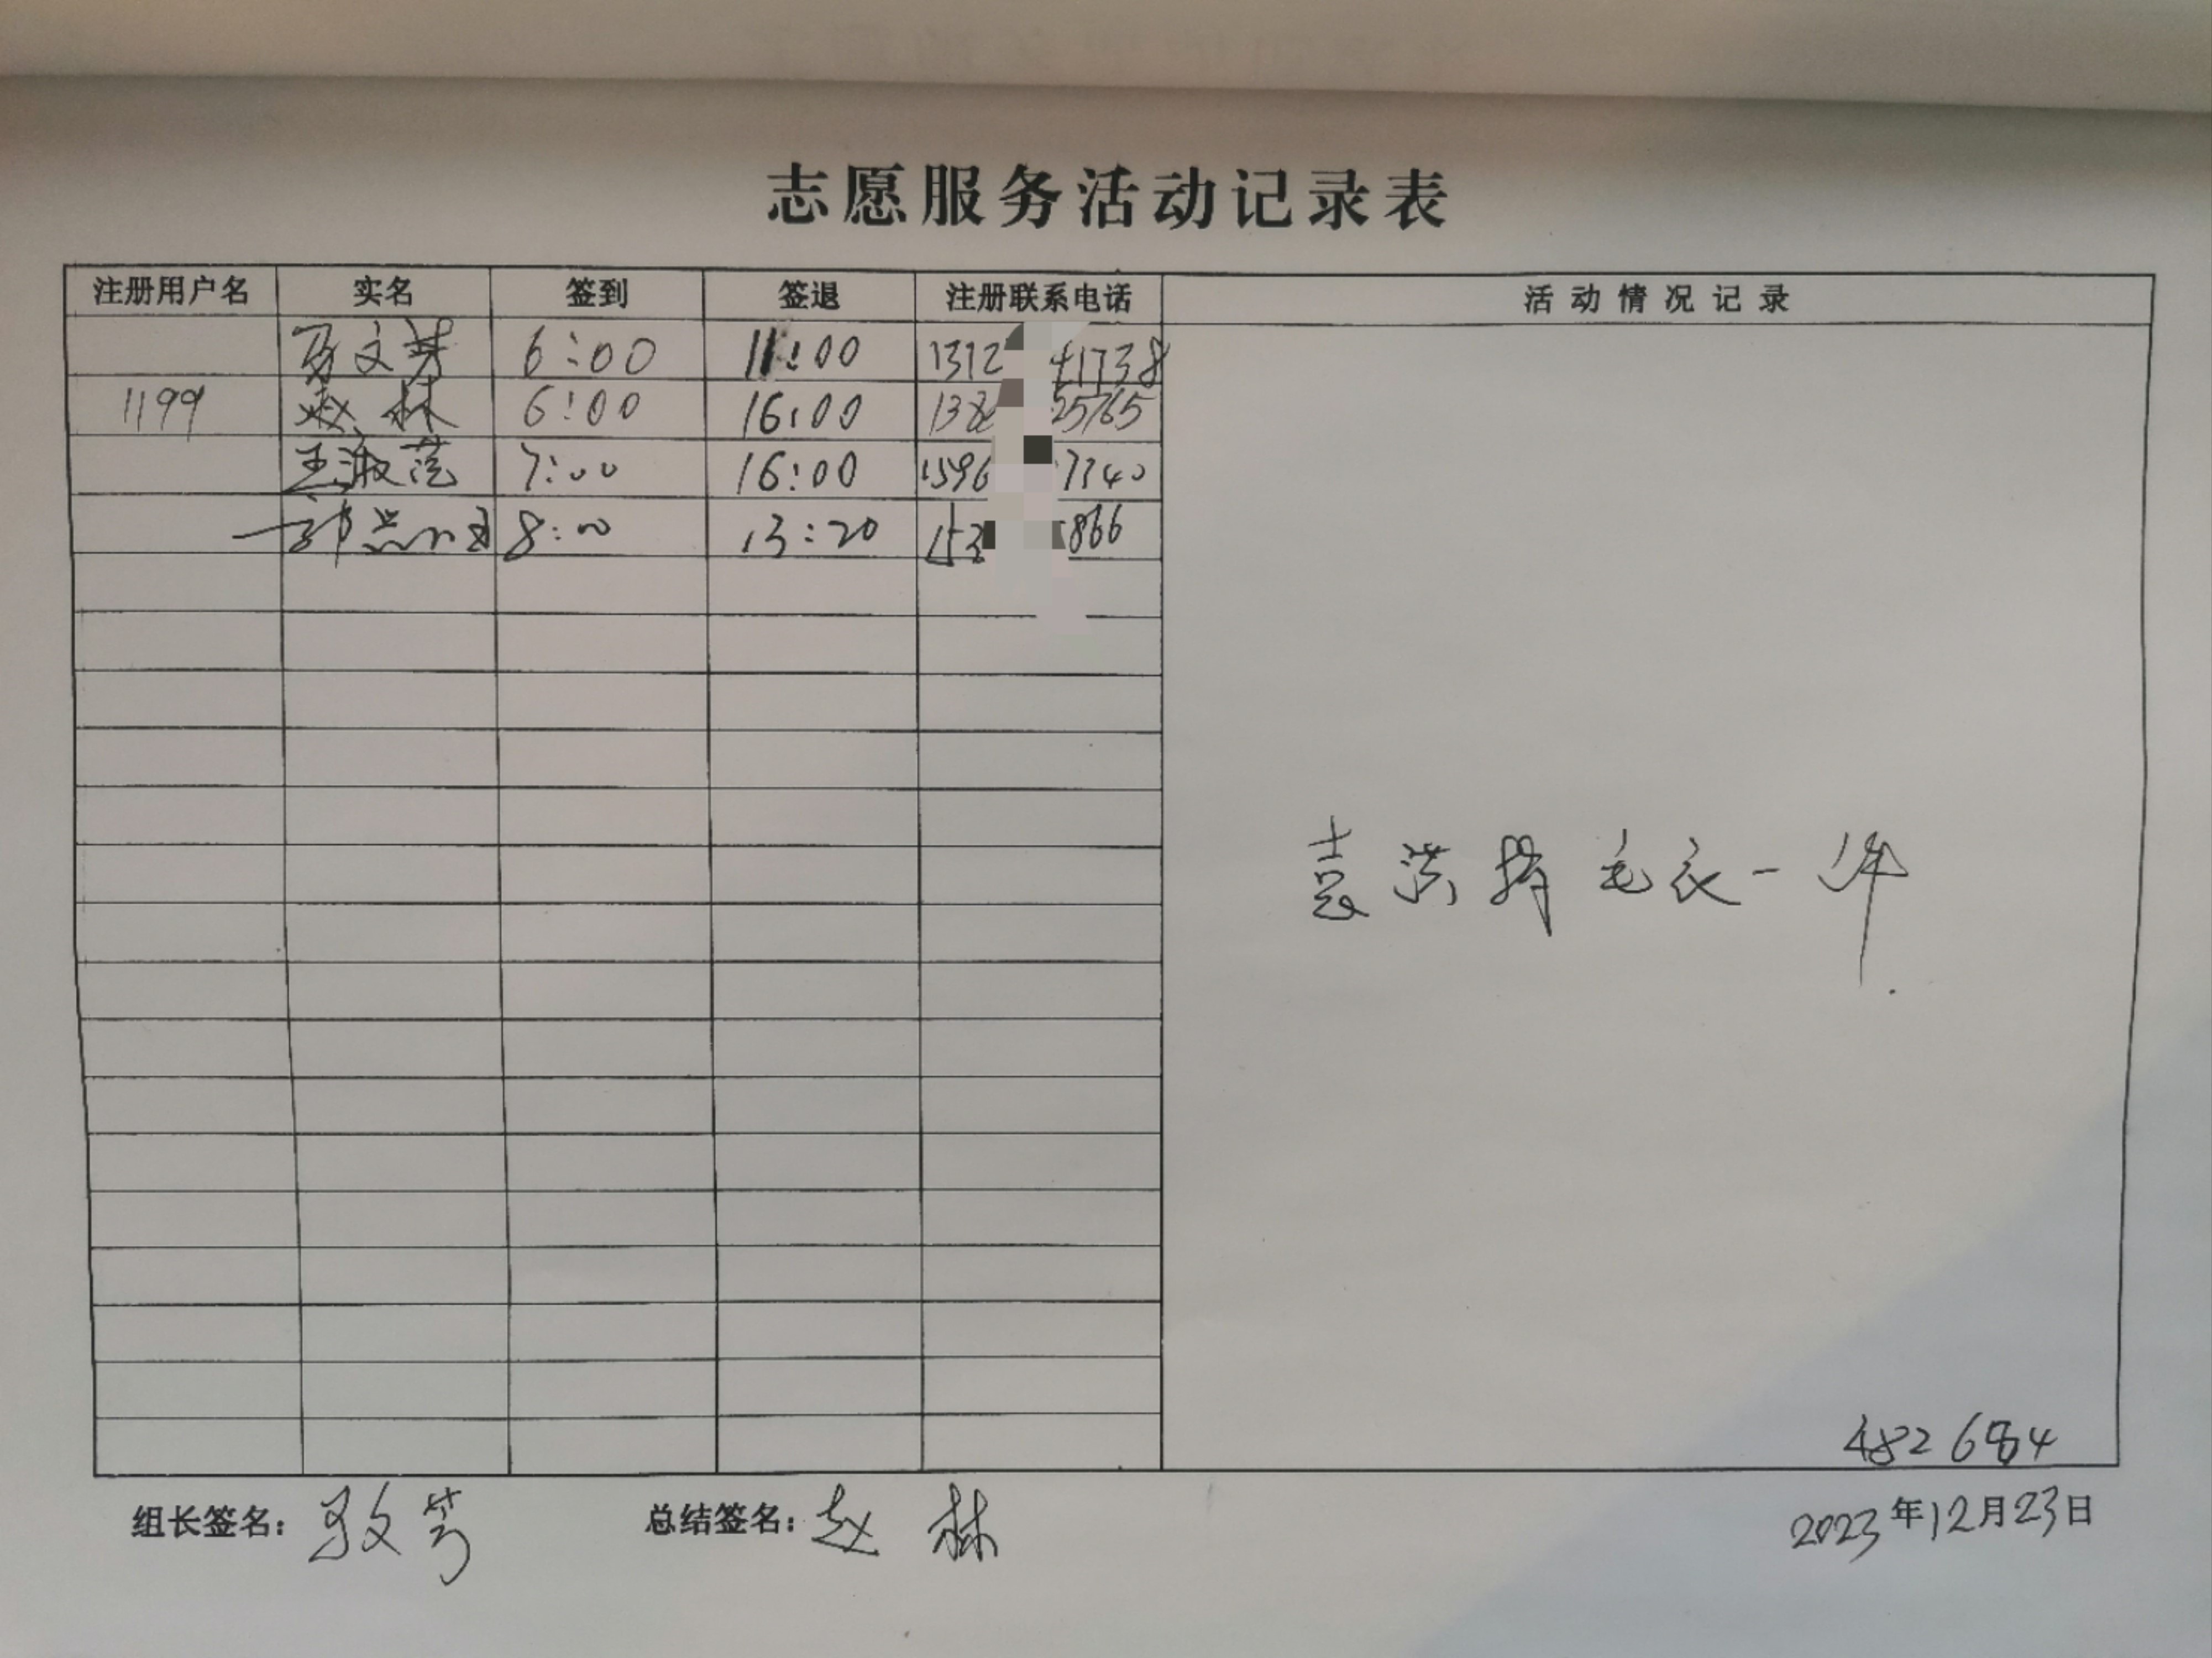 志愿服务活动记录表
注册用户名 实名 签到 签退 注册联系电话 活动情况记录
文芳 6:00 11:00 1312 41738
1199 赵林 6:00 16:00 138 25765
王淑范 7:00 16:00 1596 7340
8:00 13:20 153 866
袁洪 毛衣一件
482684
组长签名: 文芳 总结签名: 赵林 2023年12月23日